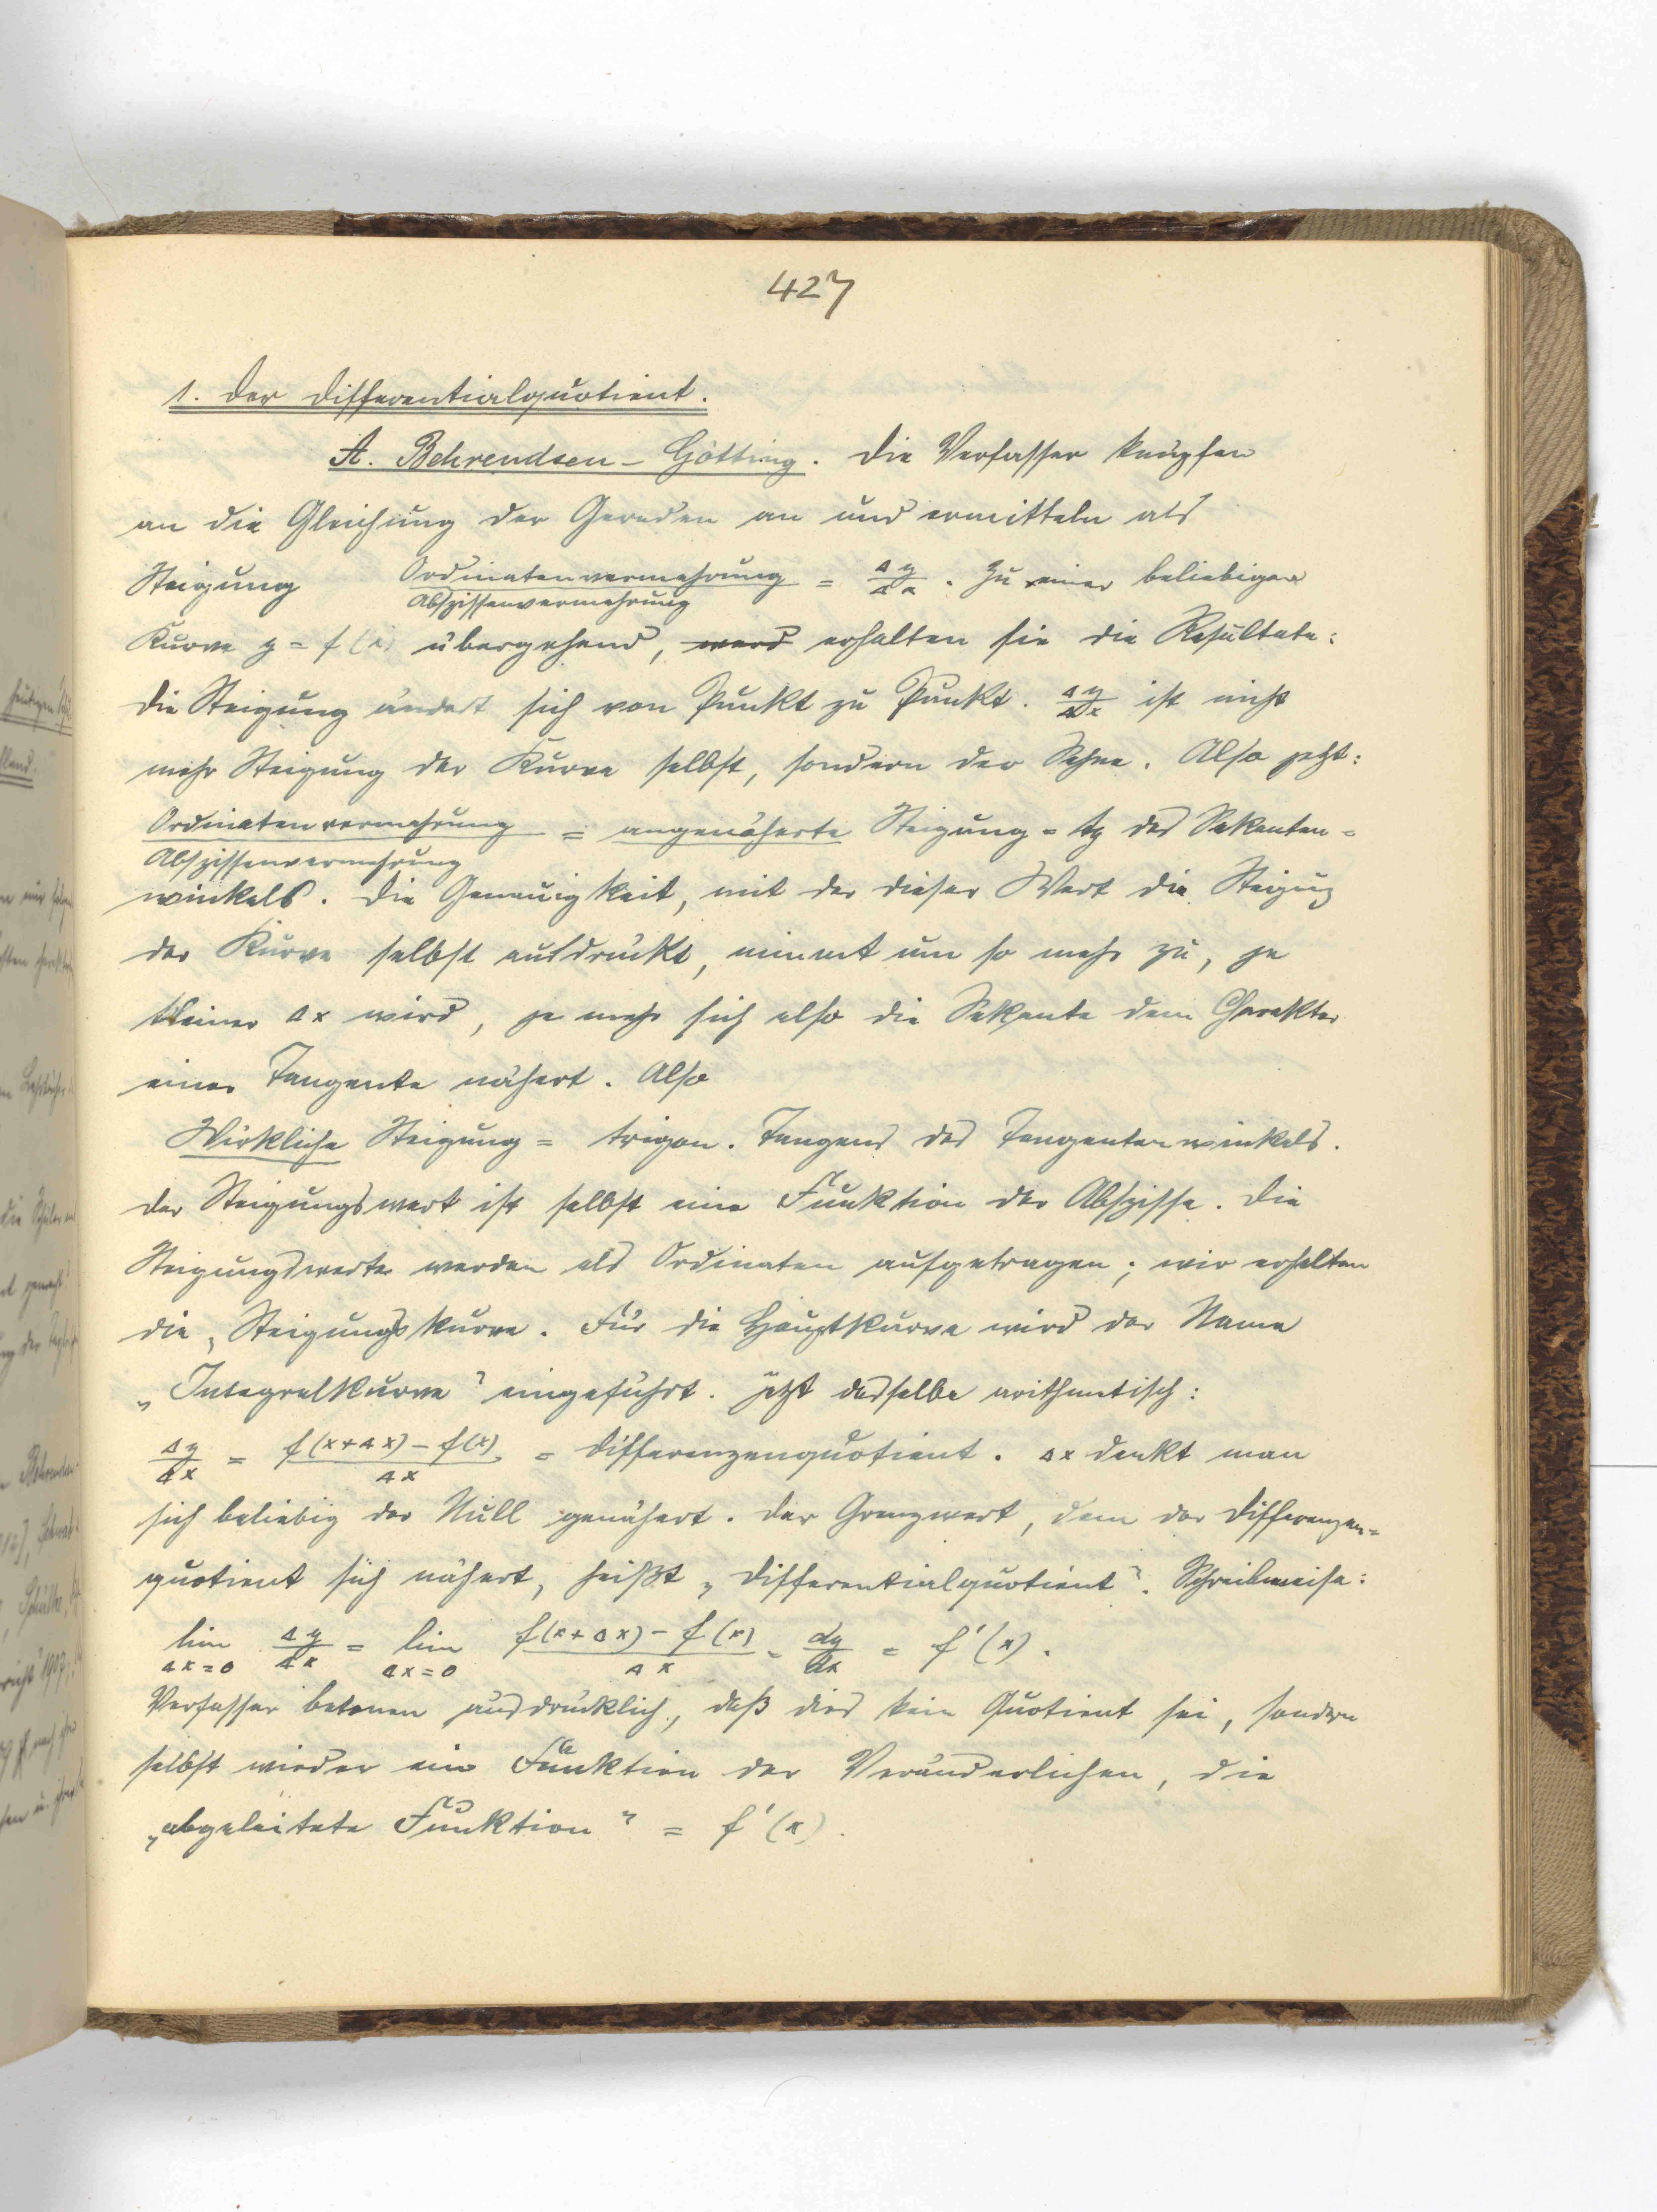 427
1. Der Differentialquotient.
A. Behrendsen - Götting. Die Verfasser knüpfen
an die Gleichung der Geraden an und ermitteln als
Steigung Ordinatenvermehrung / Abszissenvermehrung = Δy/Δx. Zu einer beliebigen
Kurve y = f(x) übergehend, erhalten sie die Resultate:
Die Steigung ändert sich von Punkt zu Punkt. Δy/Δx ist nicht
mehr Steigung der Kurve selbst, sondern der Sehne. Also jetzt:
Ordinatenvermehrung / Abszissenvermehrung = angenäherte Steigung = tg des Sekanten=
winkels. Die Genauigkeit, mit der dieser Wert die Steigung
der Kurve selbst ausdrückt, nimmt um so mehr zu, je
kleiner Δx wird, je mehr sich also die Sekante dem Charakter
einer Tangente nähert. Also
Wirkliche Steigung = trigon. Tangens des Tangentenwinkels.
Der Steigungswert ist selbst eine Funktion der Abszisse. Die
Steigungswerte werden als Ordinaten aufgetragen; wir erhalten
die „Steigungskurve. Für die Hauptkurve wird der Name
„Integralkurve" eingeführt. Jetzt dasselbe arithmetisch:
Δy/Δx = f(x+Δx) - f(x) / Δx = Differenzenquotient. Δx denkt man
sich beliebig der Null genähert. Der Grenzwert, dem der Differenzen=
quotient sich nähert, heißt „Differentialquotient". Schreibweise:
lim Δx=0 Δy/Δx = lim Δx=0 f(x+Δx) - f(x) / Δx = dy/dx = f'(x).
Verfasser betonen ausdrücklich, daß dies kein Quotient sei, sondern
selbst wieder eine Funktion der Veränderlichen, die
„abgeleitete Funktion" = f'(x).